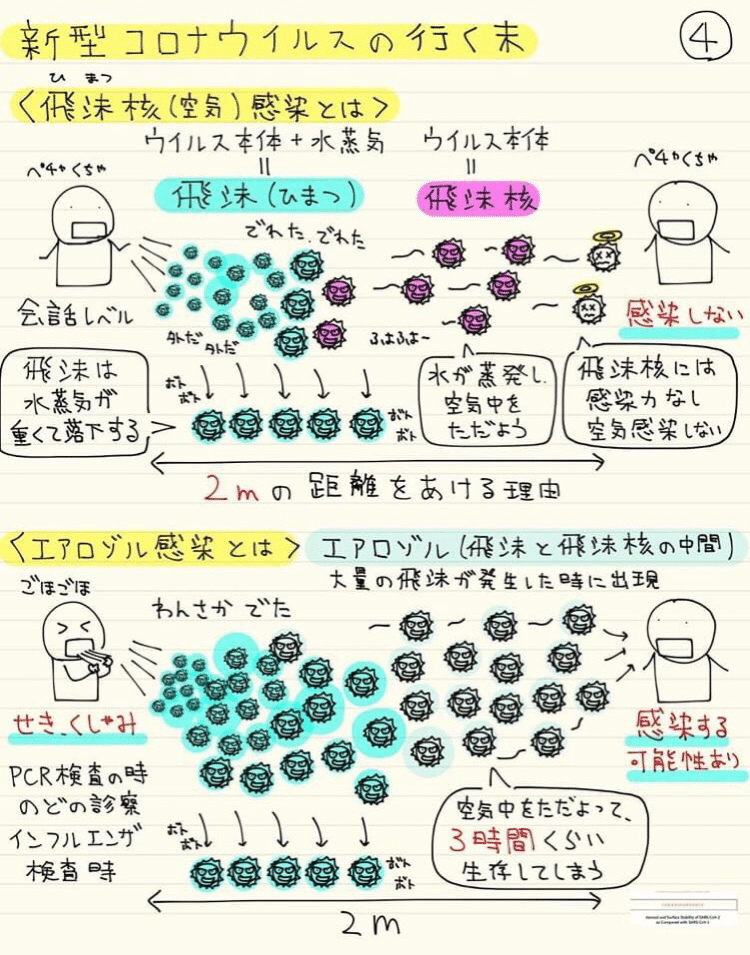 新型コロナウイルスの行く末
④
ひ まつ
<飛沫核(空気)感染とは>
ウイルス本体+水蒸気
ウイルス本体
ペチャくちゃ
ペチャくちゃ
=
=
飛沫(ひまつ)
飛沫核
でれた、でれた
会話レベル
感染しない
ふよふよ~
飛沫は
水蒸気が
重くて落下する
ボト
ボト
ボト
ボト
水が蒸発し、
空気中を
ただよう
飛沫核には
感染力なし
空気感染しない
2mの距離をあける理由
<エアロゾル感染とは>
エアロゾル(飛沫と飛沫核の中間)
大量の飛沫が発生した時に出現
ごほごほ
わんさかでた
せき、くしゃみ
感染する
可能性あり
PCR検査の時
のどの診察
インフルエンザ
検査時
ボト
ボト
ボト
ボト
空気中をただよって、
3時間くらい
生存してしまう
2m
Aerosol and Surface Stability of SARS-CoV-2
as Compared with SARS-CoV-1